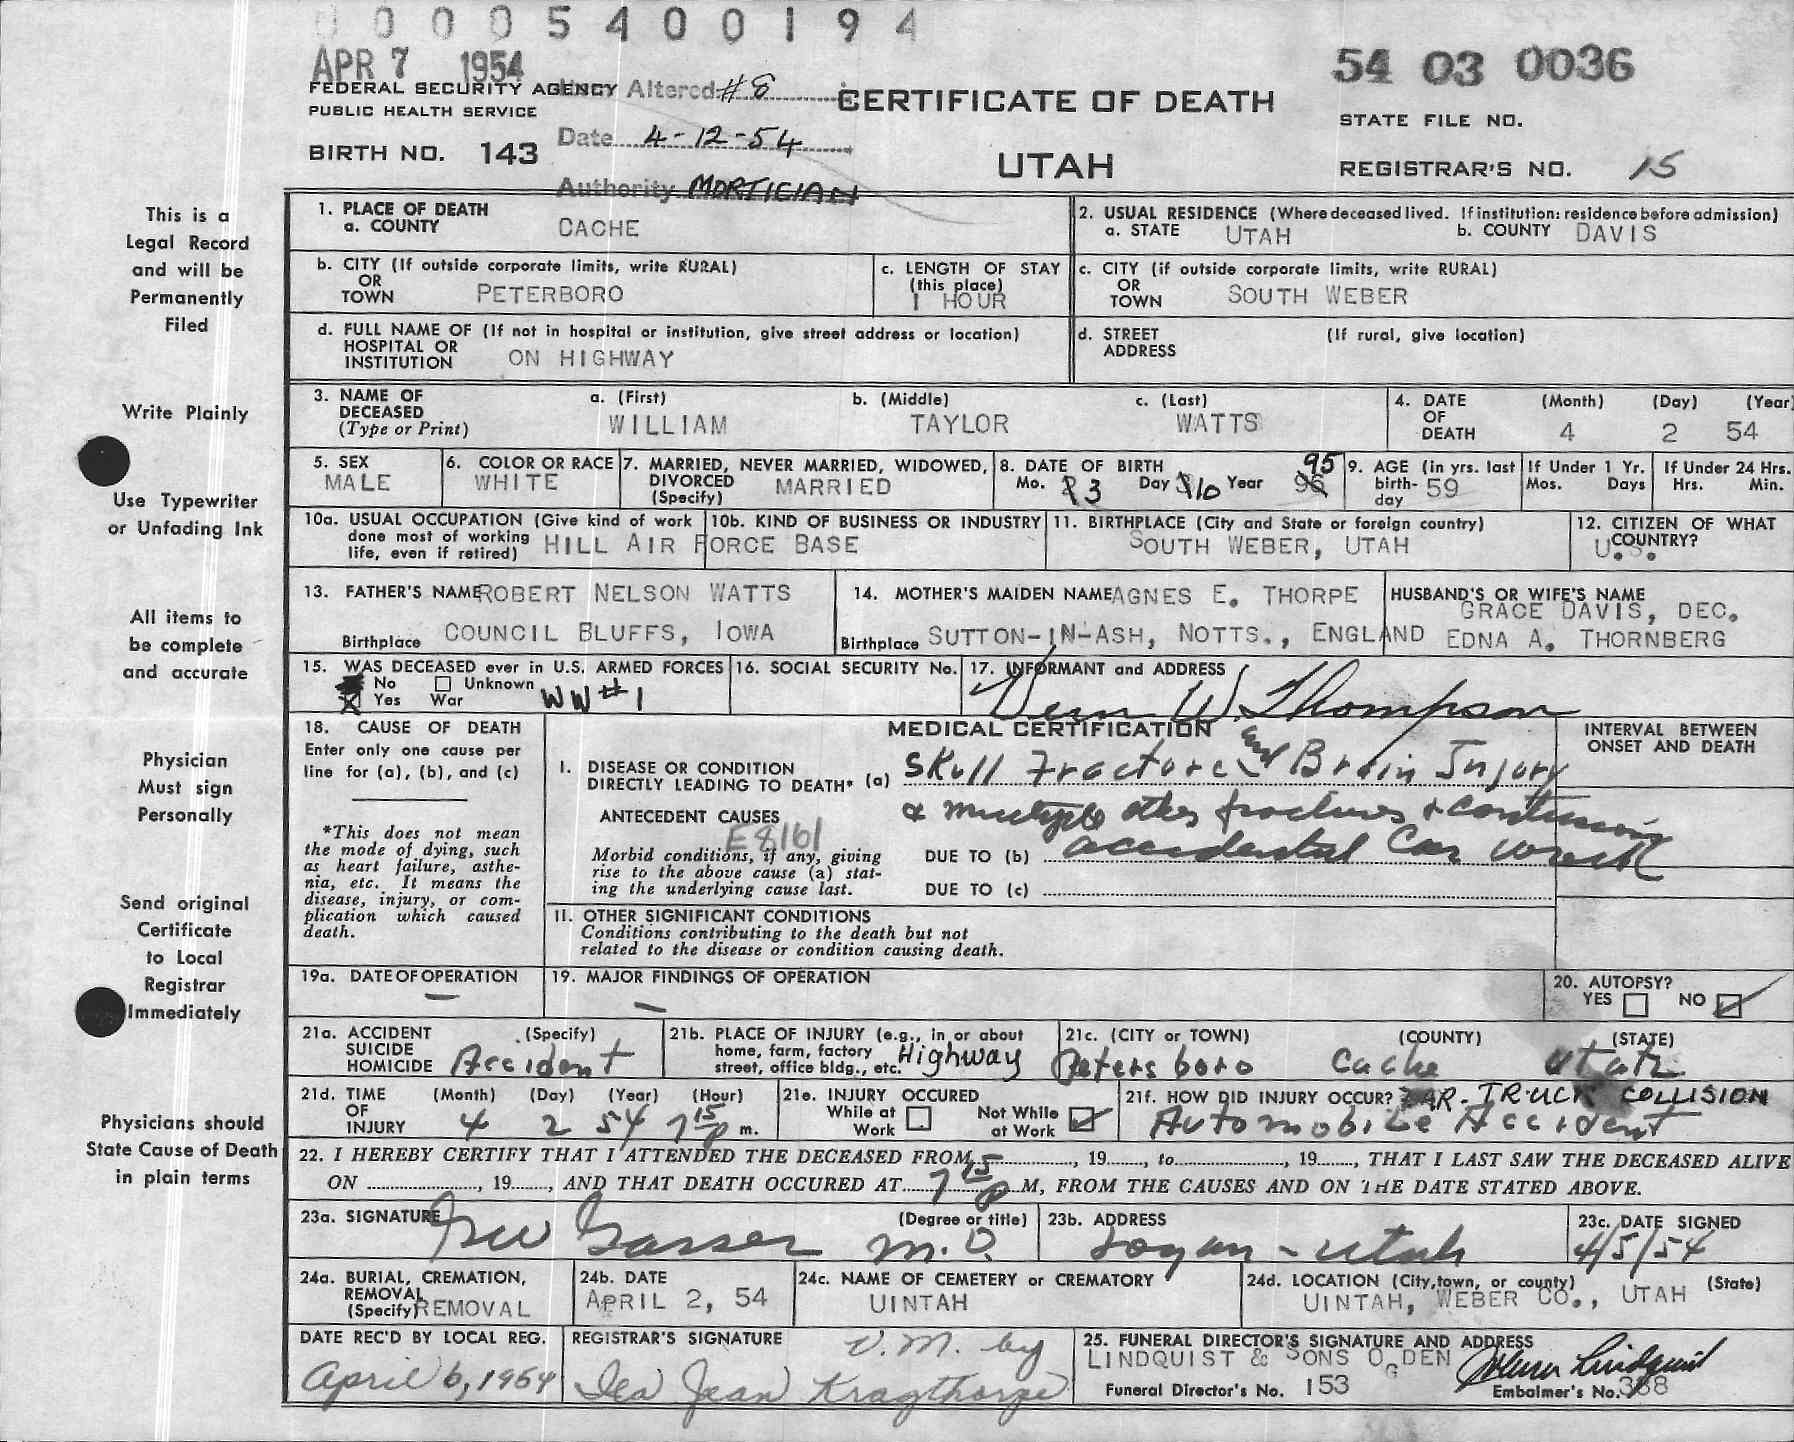 0 0 0 0 5 4 0 0 1 9 4
APR 7 1954
54 03 0036
FEDERAL SECURITY AGENCY
Altered #8
PUBLIC HEALTH SERVICE
CERTIFICATE OF DEATH
STATE FILE NO.
Date 4-12-54
BIRTH NO. 143
UTAH
REGISTRAR'S NO. 15
Authority MORTICIAN
This is a
Legal Record
and will be
Permanently
Filed
Write Plainly
Use Typewriter
or Unfading Ink
All items to
be complete
and accurate
Physician
Must sign
Personally
Send original
Certificate
to Local
Registrar
Immediately
Physicians should
State Cause of Death
in plain terms
1. PLACE OF DEATH
a. COUNTY CACHE
2. USUAL RESIDENCE (Where deceased lived. If institution: residence before admission)
a. STATE UTAH b. COUNTY DAVIS
b. CITY (If outside corporate limits, write RURAL)
OR
TOWN PETERBORO
c. LENGTH OF STAY
(this place)
1 HOUR
c. CITY (if outside corporate limits, write RURAL)
OR
TOWN SOUTH WEBER
d. FULL NAME OF (If not in hospital or institution, give street address or location)
HOSPITAL OR
INSTITUTION ON HIGHWAY
d. STREET (If rural, give location)
ADDRESS
3. NAME OF a. (First) b. (Middle) c. (Last)
DECEASED
(Type or Print) WILLIAM TAYLOR WATTS
4. DATE (Month) (Day) (Year)
OF
DEATH 4 2 54
5. SEX
MALE
6. COLOR OR RACE
WHITE
7. MARRIED, NEVER MARRIED, WIDOWED,
DIVORCED MARRIED
(Specify)
8. DATE OF BIRTH 95
Mo. 3 Day 10 Year 96
9. AGE (in yrs. last
birth- 59
day
If Under 1 Yr.
Mos. Days
If Under 24 Hrs.
Hrs. Min.
10a. USUAL OCCUPATION (Give kind of work
done most of working
life, even if retired)
10b. KIND OF BUSINESS OR INDUSTRY
HILL AIR FORCE BASE
11. BIRTHPLACE (City and State or foreign country)
SOUTH WEBER, UTAH
12. CITIZEN OF WHAT
COUNTRY?
U.S.
13. FATHER'S NAME ROBERT NELSON WATTS
Birthplace COUNCIL BLUFFS, IOWA
14. MOTHER'S MAIDEN NAME AGNES E. THORPE
Birthplace SUTTON-IN-ASH, NOTTS., ENGLAND
HUSBAND'S OR WIFE'S NAME
GRACE DAVIS, DEC.
EDNA A. THORNBERG
15. WAS DECEASED ever in U.S. ARMED FORCES
No Unknown
Yes War WW #1
16. SOCIAL SECURITY No.
17. INFORMANT and ADDRESS
Vern W. Thompson
18. CAUSE OF DEATH
Enter only one cause per
line for (a), (b), and (c)
*This does not mean
the mode of dying, such
as heart failure, asthe-
nia, etc. It means the
disease, injury, or com-
plication which caused
death.
MEDICAL CERTIFICATION
INTERVAL BETWEEN
ONSET AND DEATH
I. DISEASE OR CONDITION
DIRECTLY LEADING TO DEATH* (a) Skull Fracture and Brain Injury
& multiple other fractures & contusions
ANTECEDENT CAUSES
E8161
Morbid conditions, if any, giving
rise to the above cause (a) stat-
ing the underlying cause last.
DUE TO (b) accidental Car wreck
DUE TO (c)
II. OTHER SIGNIFICANT CONDITIONS
Conditions contributing to the death but not
related to the disease or condition causing death.
19a. DATE OF OPERATION
—
19. MAJOR FINDINGS OF OPERATION
—
20. AUTOPSY?
YES NO
21a. ACCIDENT (Specify)
SUICIDE
HOMICIDE Accident
21b. PLACE OF INJURY (e.g., in or about
home, farm, factory
street, office bldg., etc. Highway
21c. (CITY or TOWN) (COUNTY) (STATE)
Petersboro Cache Utah
21d. TIME (Month) (Day) (Year) (Hour)
OF
INJURY 4 2 54 7 15 p m.
21e. INJURY OCCURED
While at Work
Not While at Work
21f. HOW DID INJURY OCCUR? CAR-TRUCK COLLISION
Automobile Accident
22. I HEREBY CERTIFY THAT I ATTENDED THE DECEASED FROM , 19 , to , 19 , THAT I LAST SAW THE DECEASED ALIVE
ON , 19 , AND THAT DEATH OCCURED AT 7 15 p M, FROM THE CAUSES AND ON THE DATE STATED ABOVE.
23a. SIGNATURE (Degree or title)
Gasser M.D.
23b. ADDRESS
Logan - Utah
23c. DATE SIGNED
4/5/54
24a. BURIAL, CREMATION,
REMOVAL
(Specify) REMOVAL
24b. DATE
APRIL 2, 54
24c. NAME OF CEMETERY or CREMATORY
UINTAH
24d. LOCATION (City, town, or county) (State)
UINTAH, WEBER CO., UTAH
DATE REC'D BY LOCAL REG.
April 6, 1954
REGISTRAR'S SIGNATURE V.M. by
Ila Jean Kragthorpe
25. FUNERAL DIRECTOR'S SIGNATURE AND ADDRESS
LINDQUIST & SONS OGDEN
Lindquist
Funeral Director's No. 153
Embalmer's No. 338